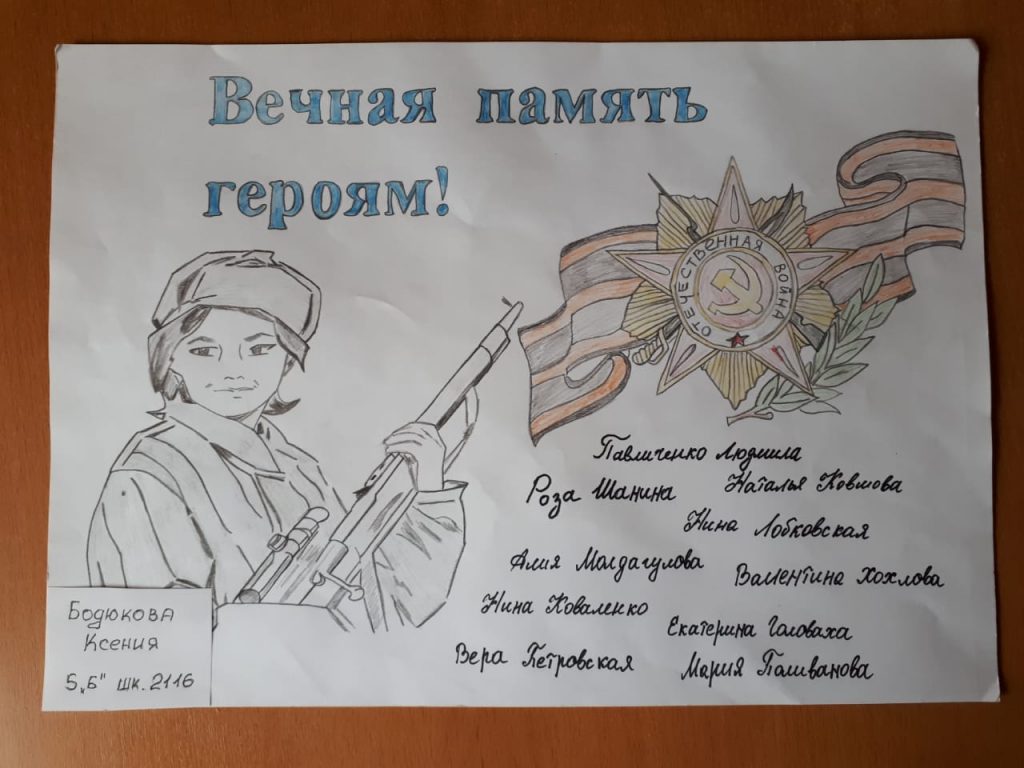 Вечная память
героям!
ОТЕЧЕСТВЕННАЯ ВОЙНА
Павличенко Людмила
Роза Шанина
Наталья Ковшова
Нина Лобковская
Алия Молдагулова
Валентина Хохлова
Нина Коваленко
Екатерина Головаха
Вера Петровская
Мария Поливанова
Бодюкова
Ксения
5 „Б" шк. 2116